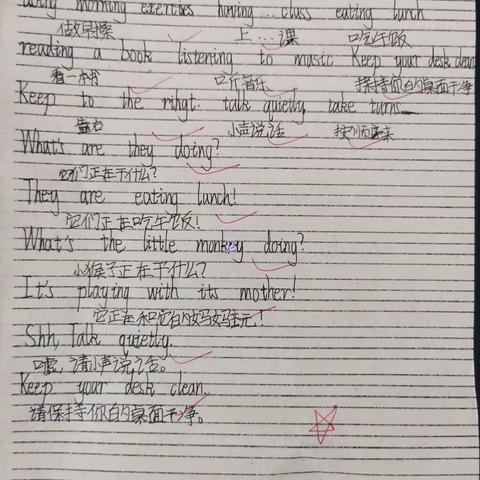 doing morning exercises having...class eating lunch
做早操 上…课 吃午饭
reading a book listening to music Keep your desk clean
看一本书 听音乐 保持你的桌面干净
Keep to the rihgt. talk quietly take turns
靠右 小声说话 按顺序来
What's are they doing?
它们正在干什么?
They are eating lunch!
它们正在吃午饭!
What's the little monkey doing?
小猴子正在干什么?
It's playing with its mother!
它正在和它的妈妈玩!
Shh, Talk quietly.
嘘,请小声说话。
Keep your desk clean.
请保持你的桌面干净。